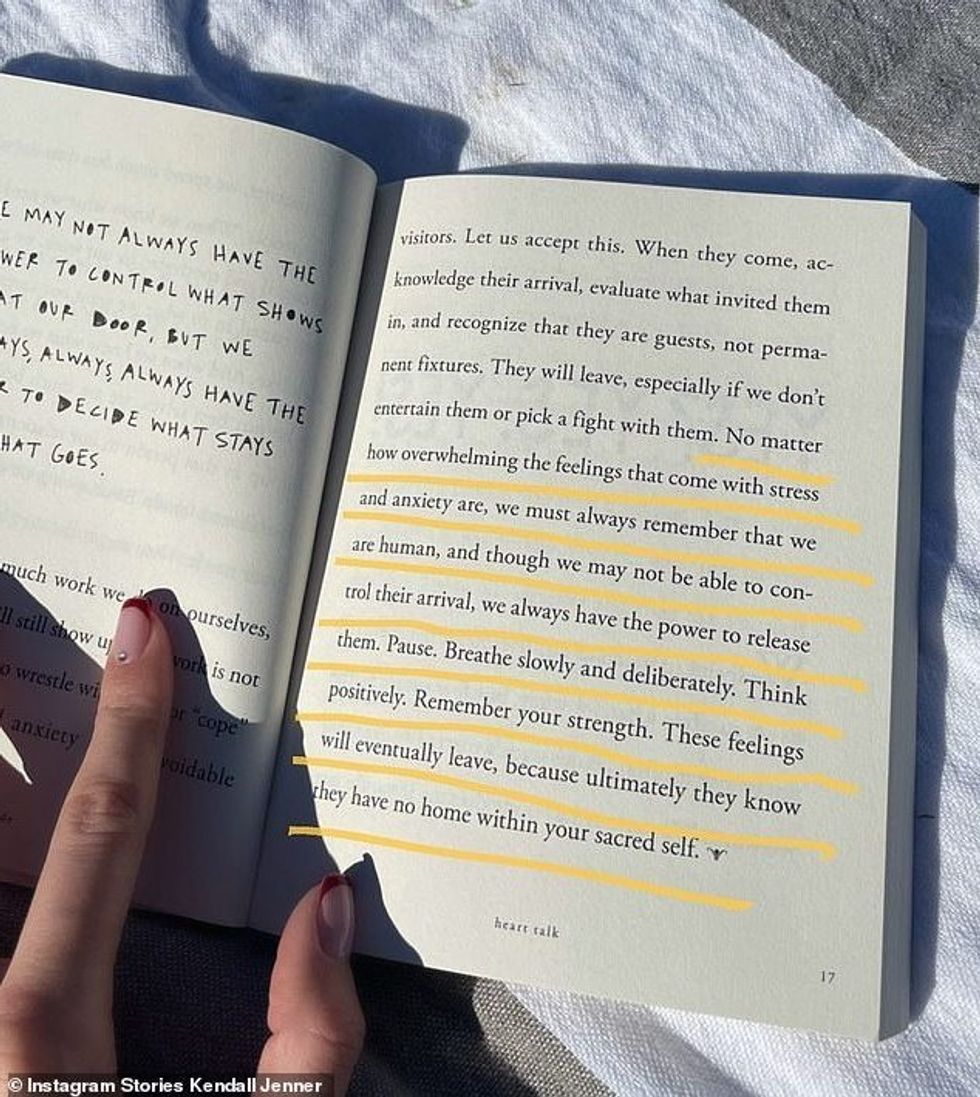 E MAY NOT ALWAYS HAVE THE
WER TO CONTROL WHAT SHOWS
AT OUR DOOR, BUT WE
AYS, ALWAYS, ALWAYS HAVE THE
R TO DECIDE WHAT STAYS
HAT GOES.
much work we do on ourselves,
ll still show up work is not
o wrestle wi or “cope”
anxiety voidable
visitors. Let us accept this. When they come, ac-
knowledge their arrival, evaluate what invited them
in, and recognize that they are guests, not perma-
nent fixtures. They will leave, especially if we don’t
entertain them or pick a fight with them. No matter
how overwhelming the feelings that come with stress
and anxiety are, we must always remember that we
are human, and though we may not be able to con-
trol their arrival, we always have the power to release
them. Pause. Breathe slowly and deliberately. Think
positively. Remember your strength. These feelings
will eventually leave, because ultimately they know
they have no home within your sacred self.
heart talk
17
© Instagram Stories Kendall Jenner